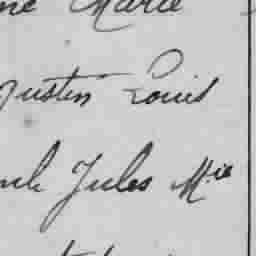 Marie
Justin Louis
Jules Mie